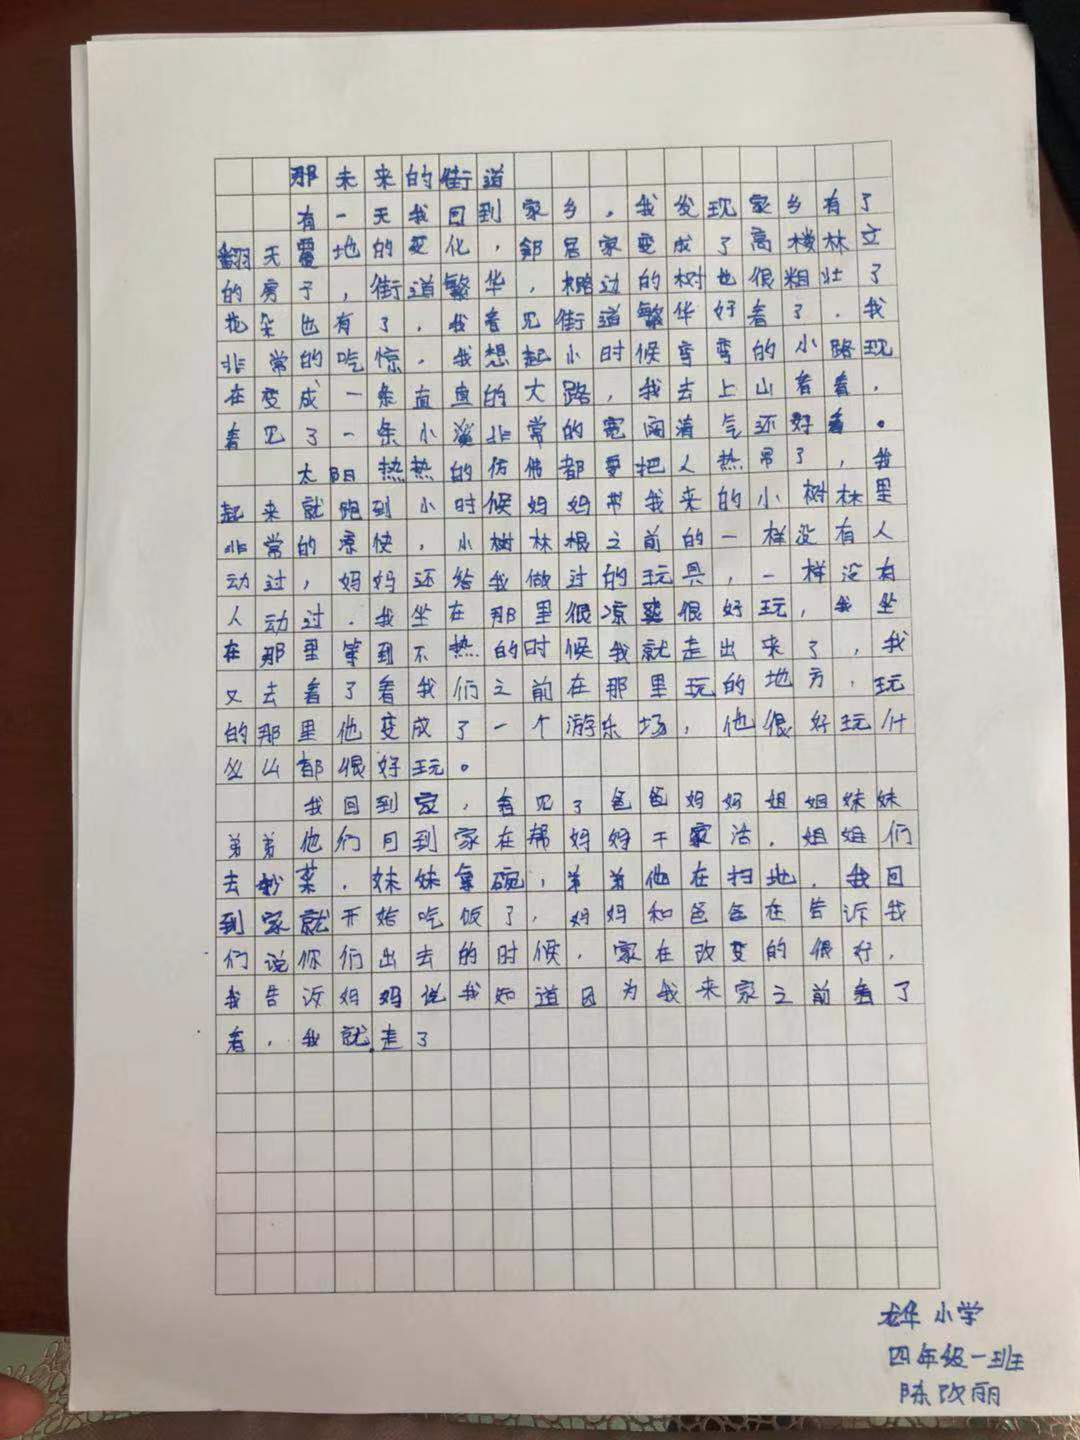 那未来的街道
有一天我回到家乡，我发现家乡有了
翻天覆地的变化，邻居家变成了高楼林立
的房子，街道繁华，路边的树也很粗壮了
花朵也有了，我看见街道繁华好看了．我
非常的吃惊．我想起小时候弯弯的小路现
在变成一条直直的大路，我去上山看看，
看见了一条小溪非常的宽阔清气还好看。
太阳热热的仿佛都要把人热吊了，我
起来就跑到小时候妈妈带我来的小树林里
非常的凉快，小树林根之前的一样没有人
动过，妈妈还给我做过的玩具，一样没有
人动过．我坐在那里很凉爽很好玩，我坐
在那里等到不热的时候我就走出来了，我
又去看了看我们之前在那里玩的地方，玩
的那里他变成了一个游乐场，他很好玩什
么么都很好玩。
我回到家，看见了爸爸妈妈姐姐妹妹
弟弟他们回到家在帮妈妈干家活．姐姐们
去炒菜．妹妹拿碗，弟弟他在扫地．我回
到家就开始吃饭了，妈妈和爸爸在告诉我
们说你们出去的时候．家在改变的很好．
我告诉妈妈说我知道因为我来家之前看了
看，我就走了
龙华小学
四年级一班
陈改丽